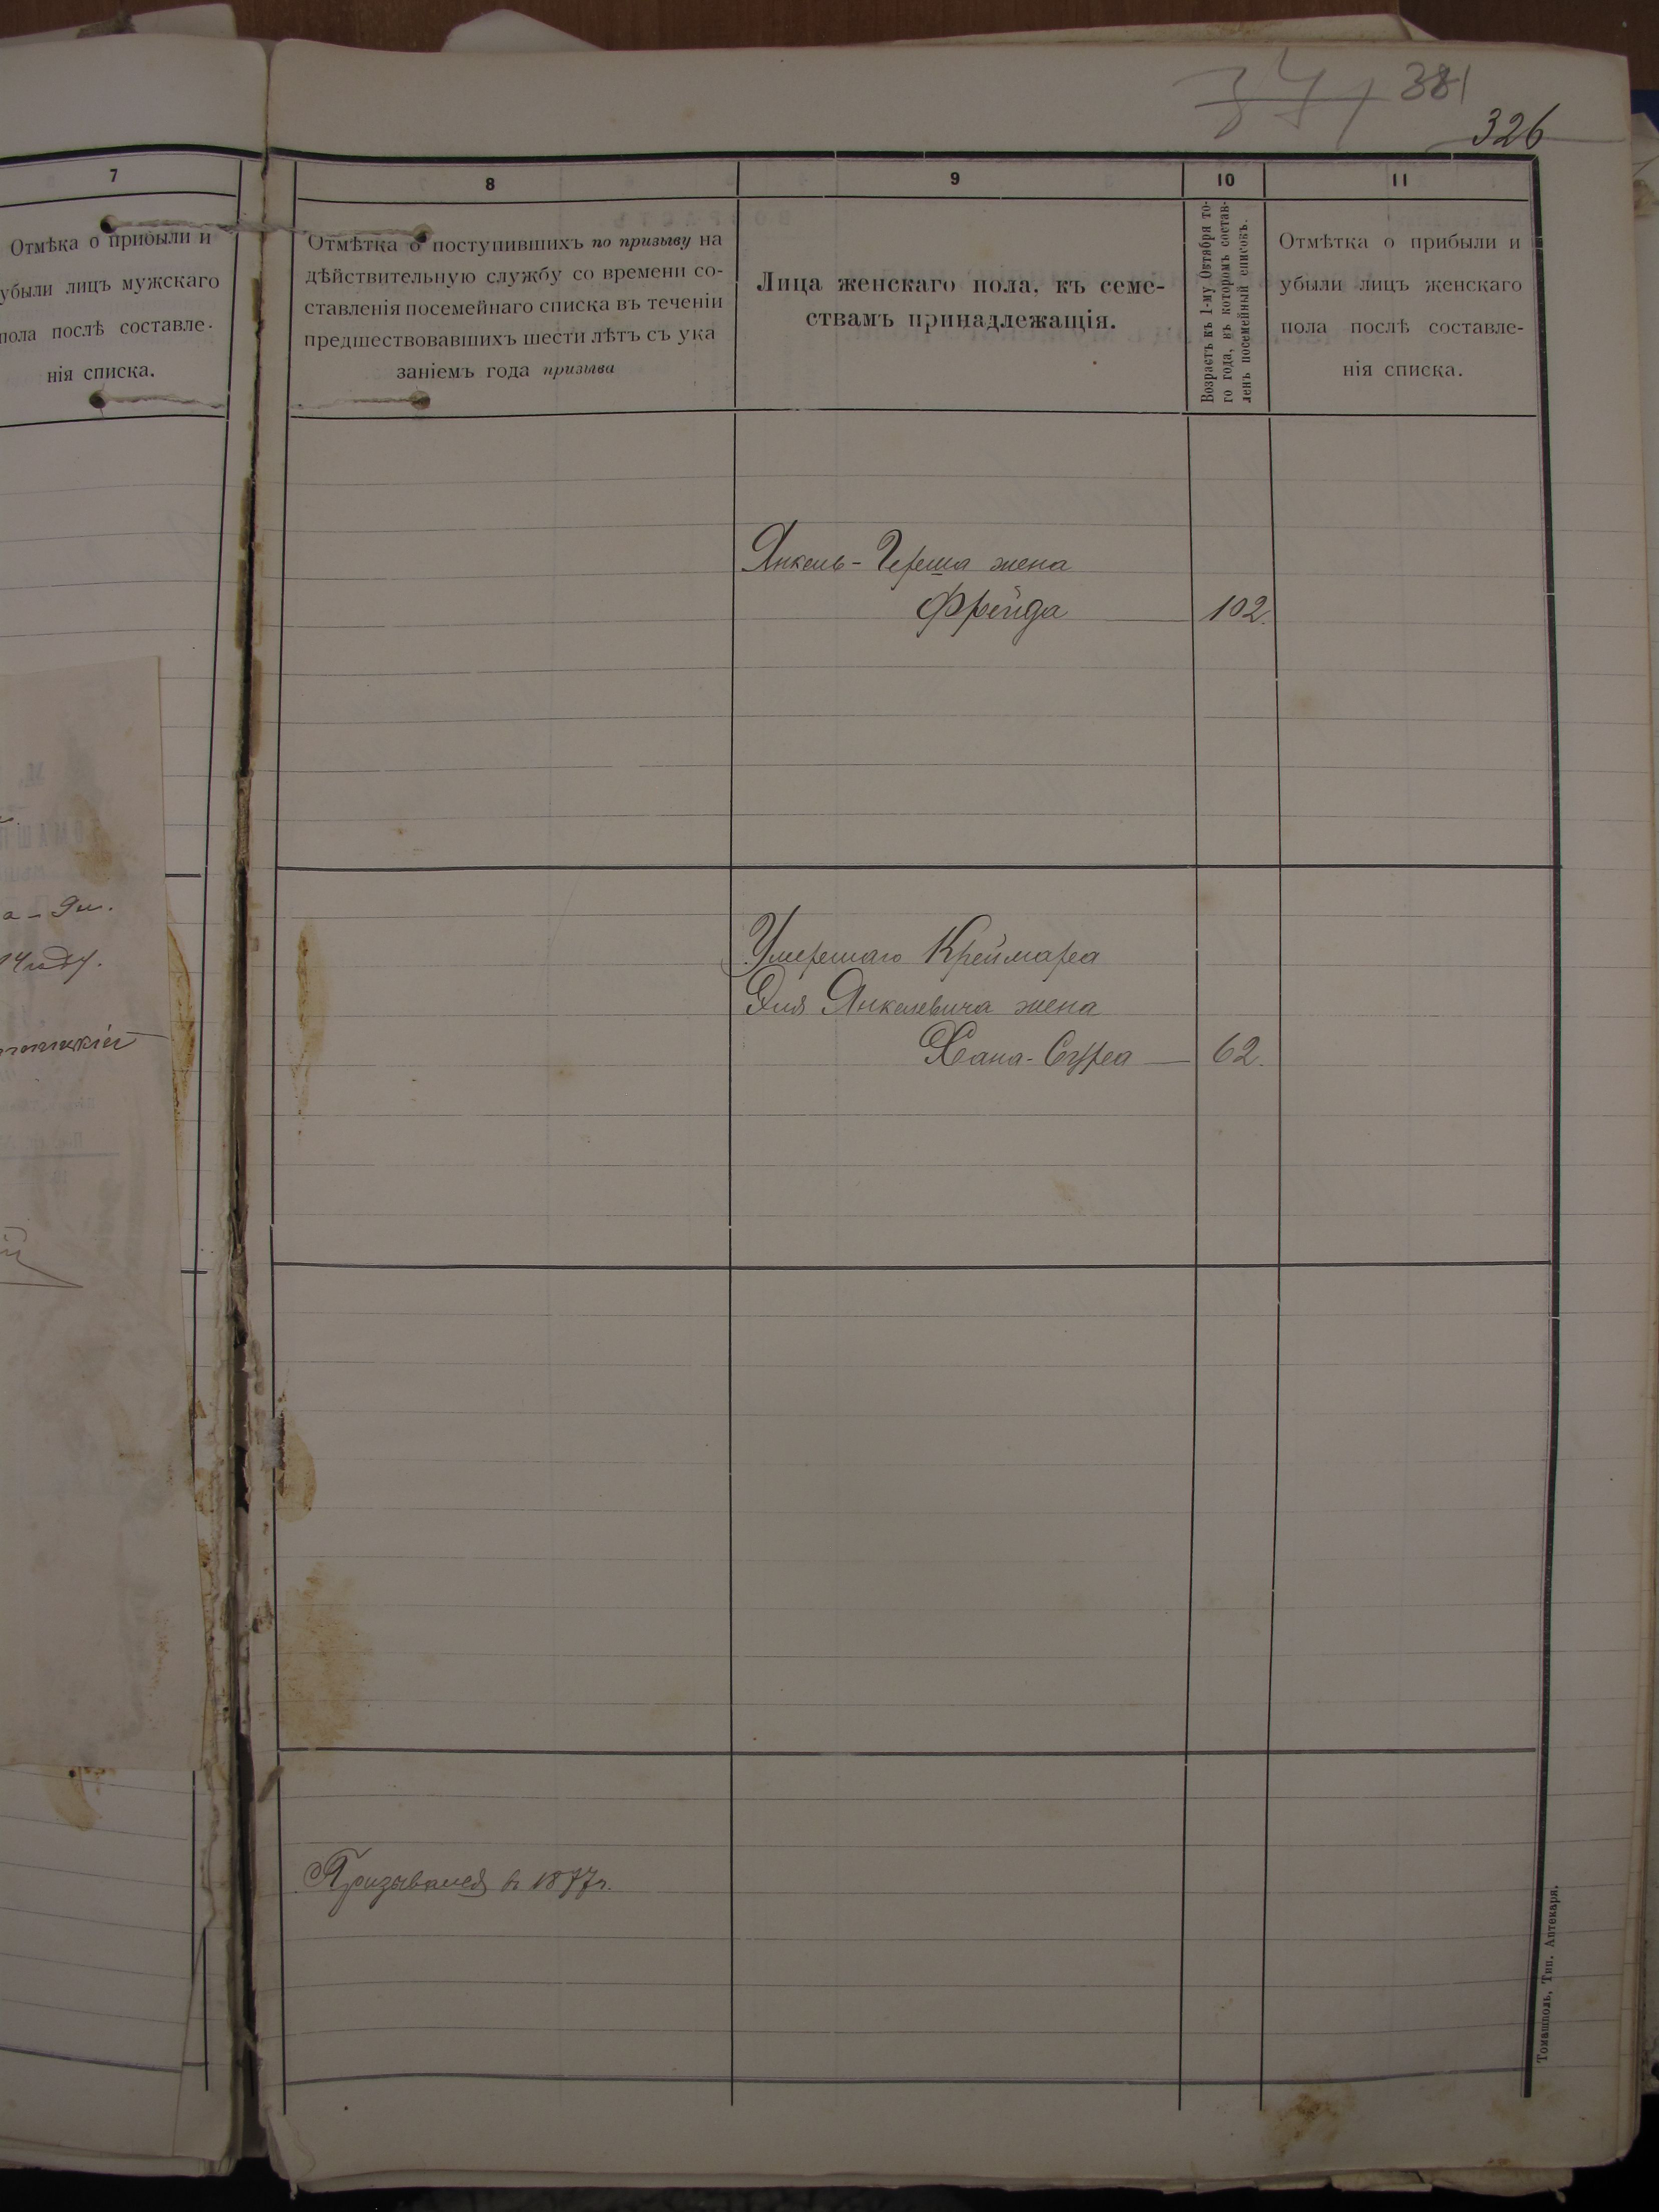 381
326
7
Отмѣка о прибыли и
убыли лицъ мужскаго
пола послѣ составле-
нія списка.
8
Отмѣтка о поступившихъ по призыву на
дѣйствительную службу со времени со-
ставленія посемейнаго списка въ теченіи
предшествовавшихъ шести лѣтъ съ ука
заніемъ года призыва
9
Лица женскаго пола, къ семе-
ствамъ принадлежащія.
10
Возрастъ къ 1-му Октября то-
го года, въ которомъ состав-
ленъ посемейный списокъ.
11
Отмѣтка о прибыли и
убыли лицъ женскаго
пола послѣ составле-
нія списка.
Янкель-Герша жена
Фрейда 102.
Умершаго Креймара
Эля Янкелевича жена
Хана-Сура 62.
Призывался в 1877г.
Томашполь, Тип. Аптекаря.